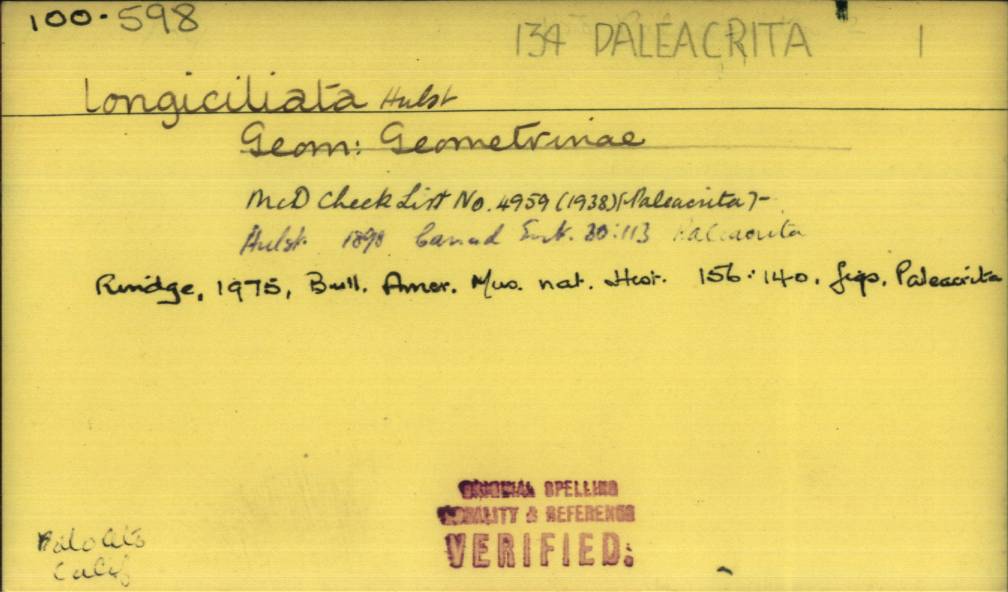 100.598
134 PALEACRITA 1
longiciliata Hulst
Geom: Geometrinae
McD Check List No. 4959 (1938) (Paleacrita)-
Hulst 1898 Canad Ent. 30:113 Paleacrita
Rindge, 1975, Bull. Amer. Mus. nat. Hist. 156:140. figs. Paleacrita
ORIGINAL SPELLING
LOCALITY & REFERENCE
VERIFIED.
Palo Alto
Calif